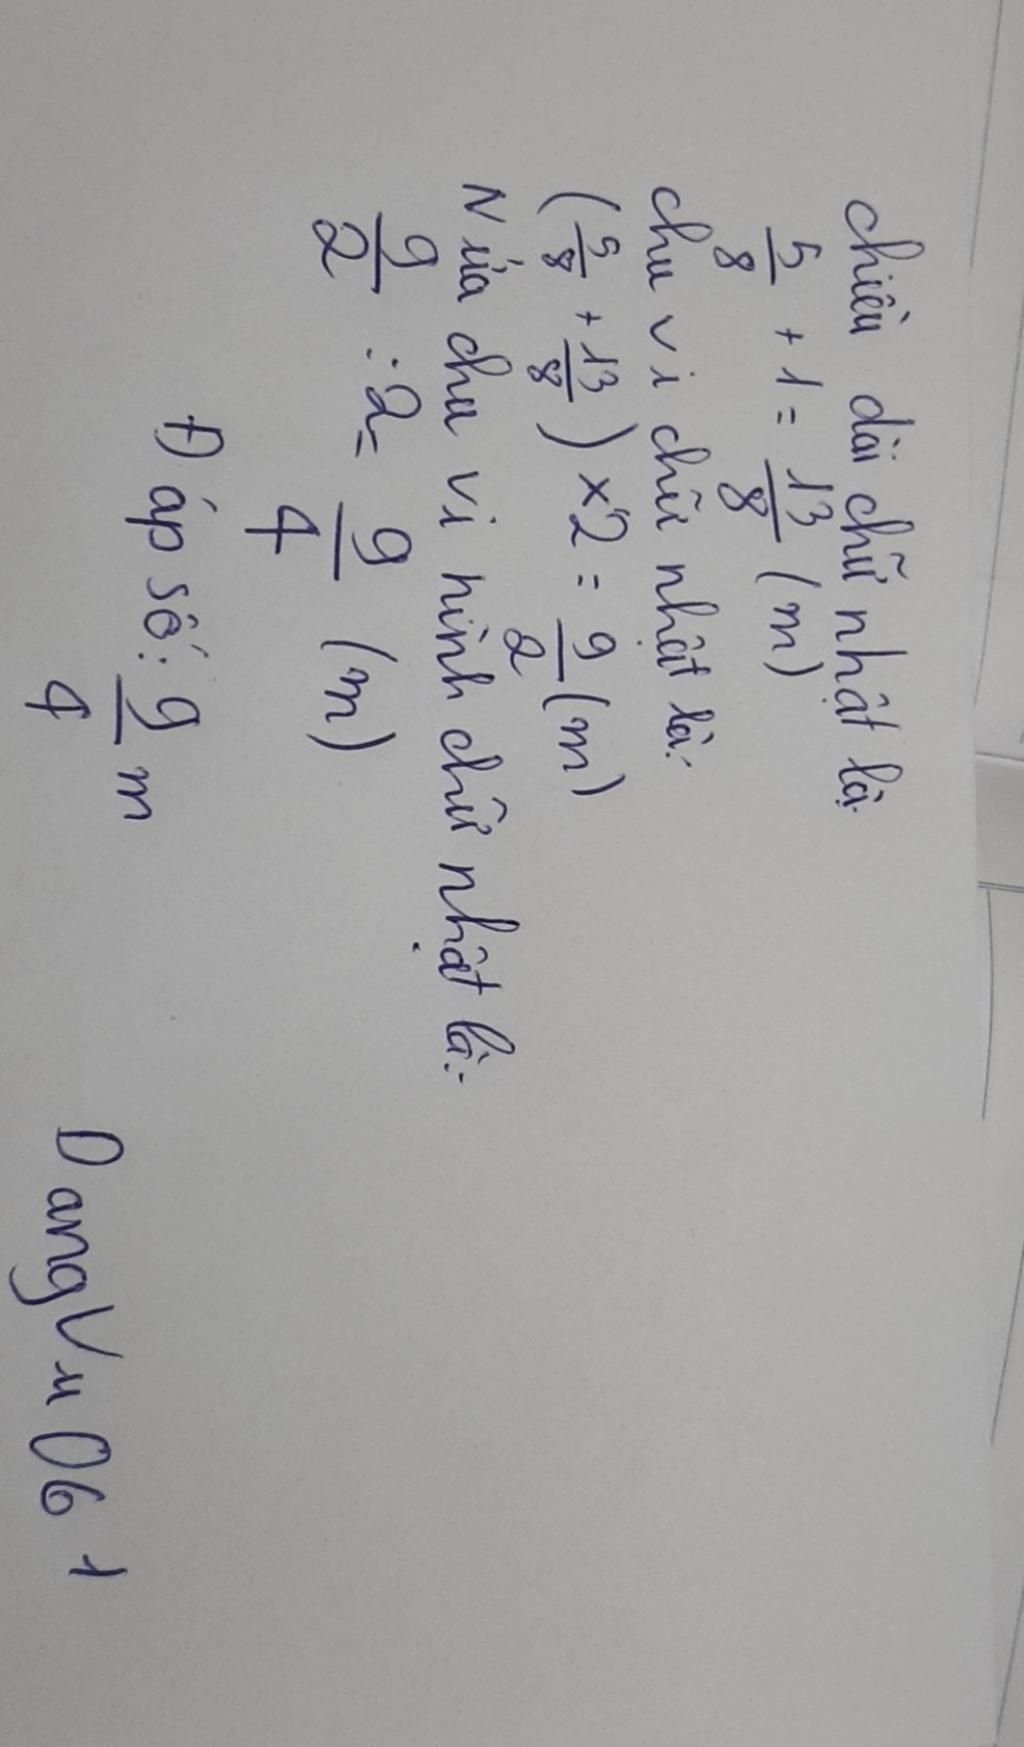 chiều dài chữ nhật là
5/8 + 1 = 13/8 (m)
chu vi chữ nhật là:
(5/8 + 13/8) x 2 = 9/2 (m)
Nửa chu vi hình chữ nhật là:
9/2 : 2 = 9/4 (m)
Đáp số: 9/4 m
DangVu06 1